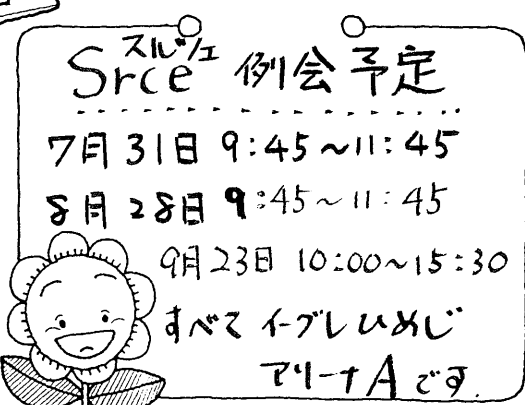 スルツェ
Srce 例会予定
7月31日 9:45～11:45
8月28日 9:45～11:45
9月23日 10:00～15:30
すべて イーブレひめじ
アリーナAです.